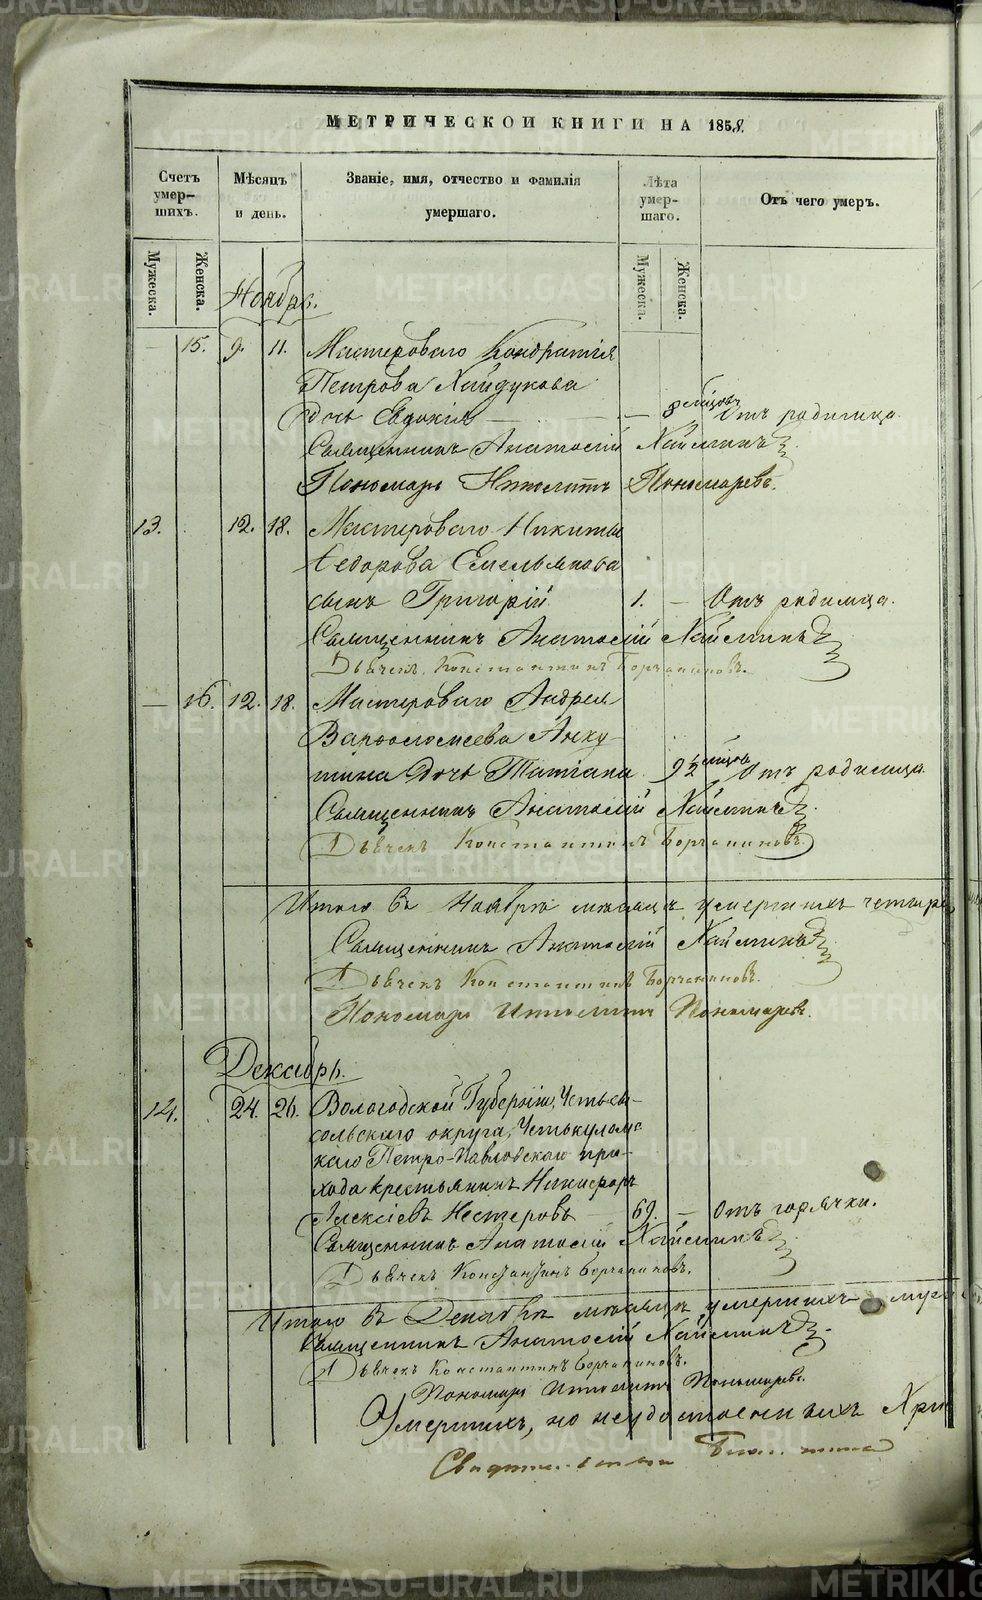 МЕТРИЧЕСКОЙ КНИГИ НА 1858.
Счетъ умер-шихъ.
Мѣсяцъ и день.
Званіе, имя, отчество и фамилія умершаго.
Лѣта умер-шаго.
Отъ чего умеръ.
Мужеска.
Женска.
Мужеска.
Женска.
Ноябрь.
— 15. 9. 11. Мастероваго Кондратія
Петрова Хайдукова
дочь Евдокія — — 8 мѣсцовъ Отъ родимца.
Священникъ Анатолій Хайминъ
Пономарь Ипполитъ Пономаревъ.
13. 12. 18. Мастероваго Никиты
Ѳедорова Емельянова
сынъ Григорій 1. — Отъ родимца.
Священникъ Анатолій Хайминъ
Дьячекъ Константинъ Борчаниновъ.
— 16. 12. 18. Мастероваго Андрея
Варѳоломеева Анку-
тина дочь Татіана 9½ мѣсцовъ Отъ родимца
Священникъ Анатолій Хайминъ
Дьячекъ Константинъ Борчаниновъ.
Итого въ Ноябрѣ мѣсяцѣ умершихъ четыре
Священникъ Анатолій Хайминъ
Дьячекъ Константинъ Борчаниновъ.
Пономарь Ипполитъ Пономаревъ.
Декабрь.
14. 24. 26. Вологодской Губерніи, Устьсы-
сольскаго округа, Устькулом-
скаго Петро-Павловскаго при-
хода крестьянинъ Никифоръ
Алексіевъ Нестеровъ 69. — Отъ горячки.
Священникъ Анатолій Хайминъ
Дьячекъ Константинъ Борчаниновъ.
Итого въ Декабрѣ мѣсяцѣ умершихъ
Священникъ Анатолій Хайминъ
Дьячекъ Константинъ Борчаниновъ.
Пономарь Ипполитъ Пономаревъ.
Умершихъ, но неудостоенныхъ Хри
METRIKI.GASO-URAL.RU